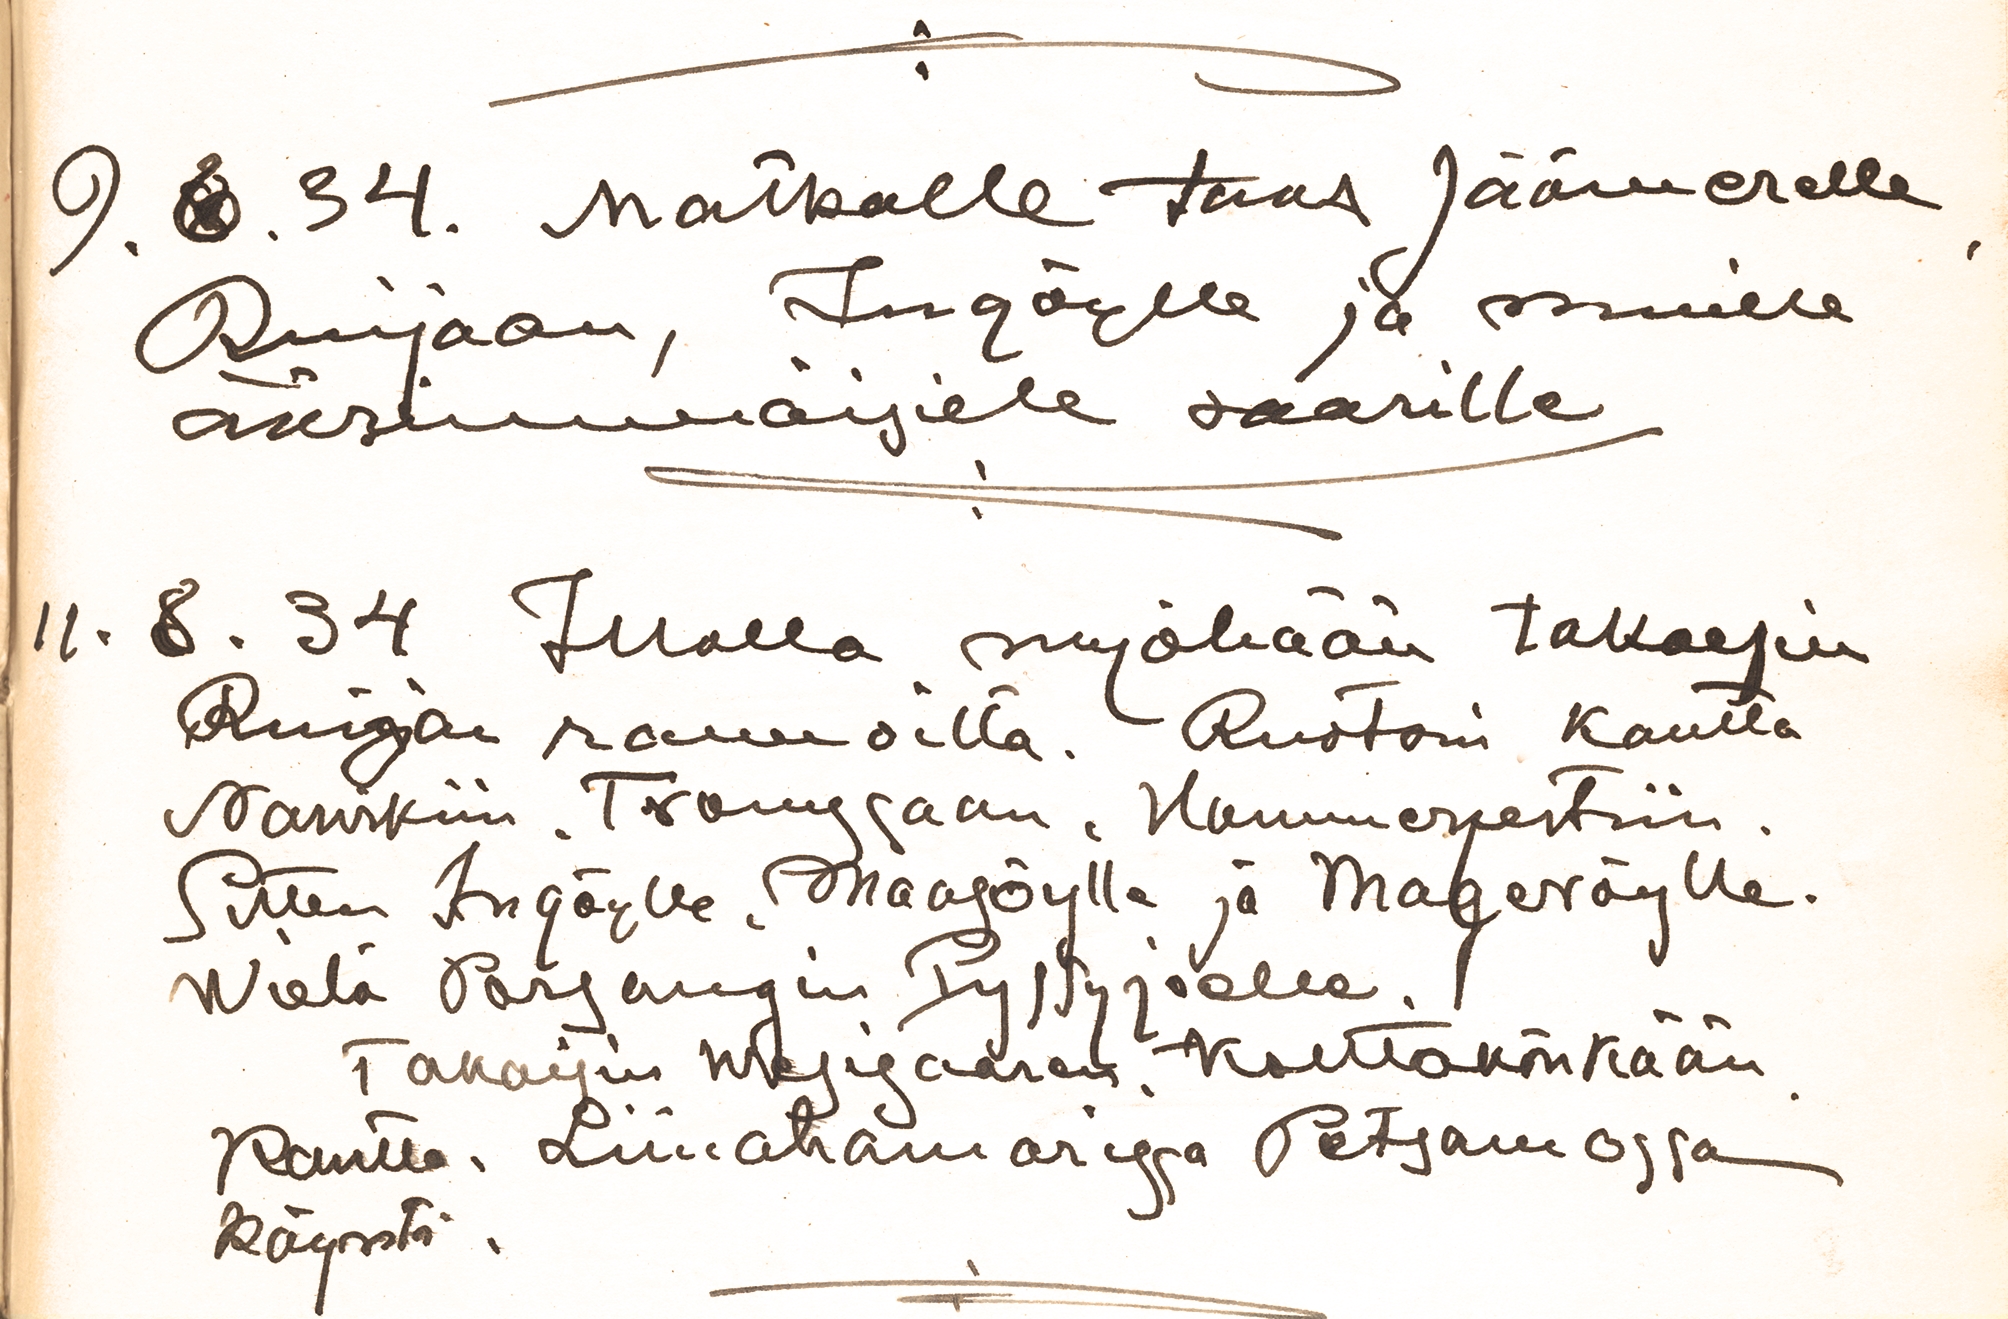 9. 8. 34. Matkalle taas Jäämerelle,
Ruijaan, Ingöylle ja muille
äärimmäisille saarille
11. 8. 34 Illalla myöhään takaisin
Ruijan rannoilta. Ruotsin kautta
Narvikiin, Tromssaan, Hammerfestiin.
Sitten Ingöylle, Maasöylle ja Mageröylle.
Wielä Porsangin Pyssyjoelle.
Takaisin Wesisaaren, Kolttakönkään
kautta. Liinahamarissa Petsamossa
käynti.